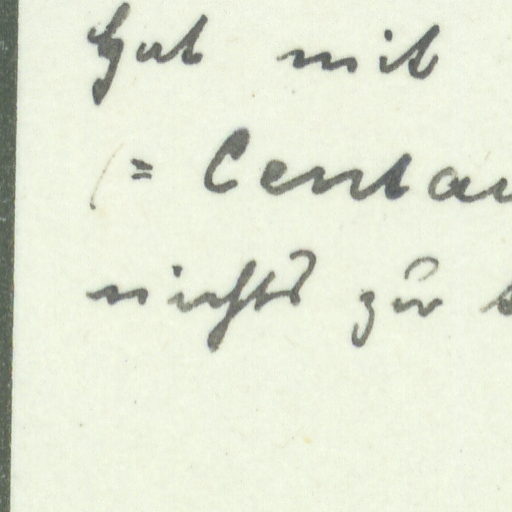 hat mit
(= Centau
nichts zu